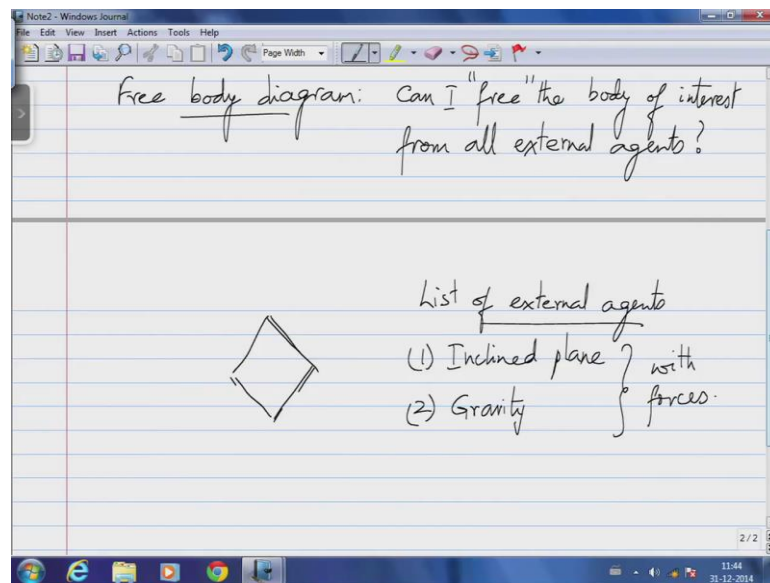 Note2 - Windows Journal
File Edit View Insert Actions Tools Help
Page Width
Free body diagram: Can I "free" the body of interest
from all external agents?
List of external agents
(1) Inclined plane } with
(2) Gravity } forces.
2 / 2
11:44
31-12-2014